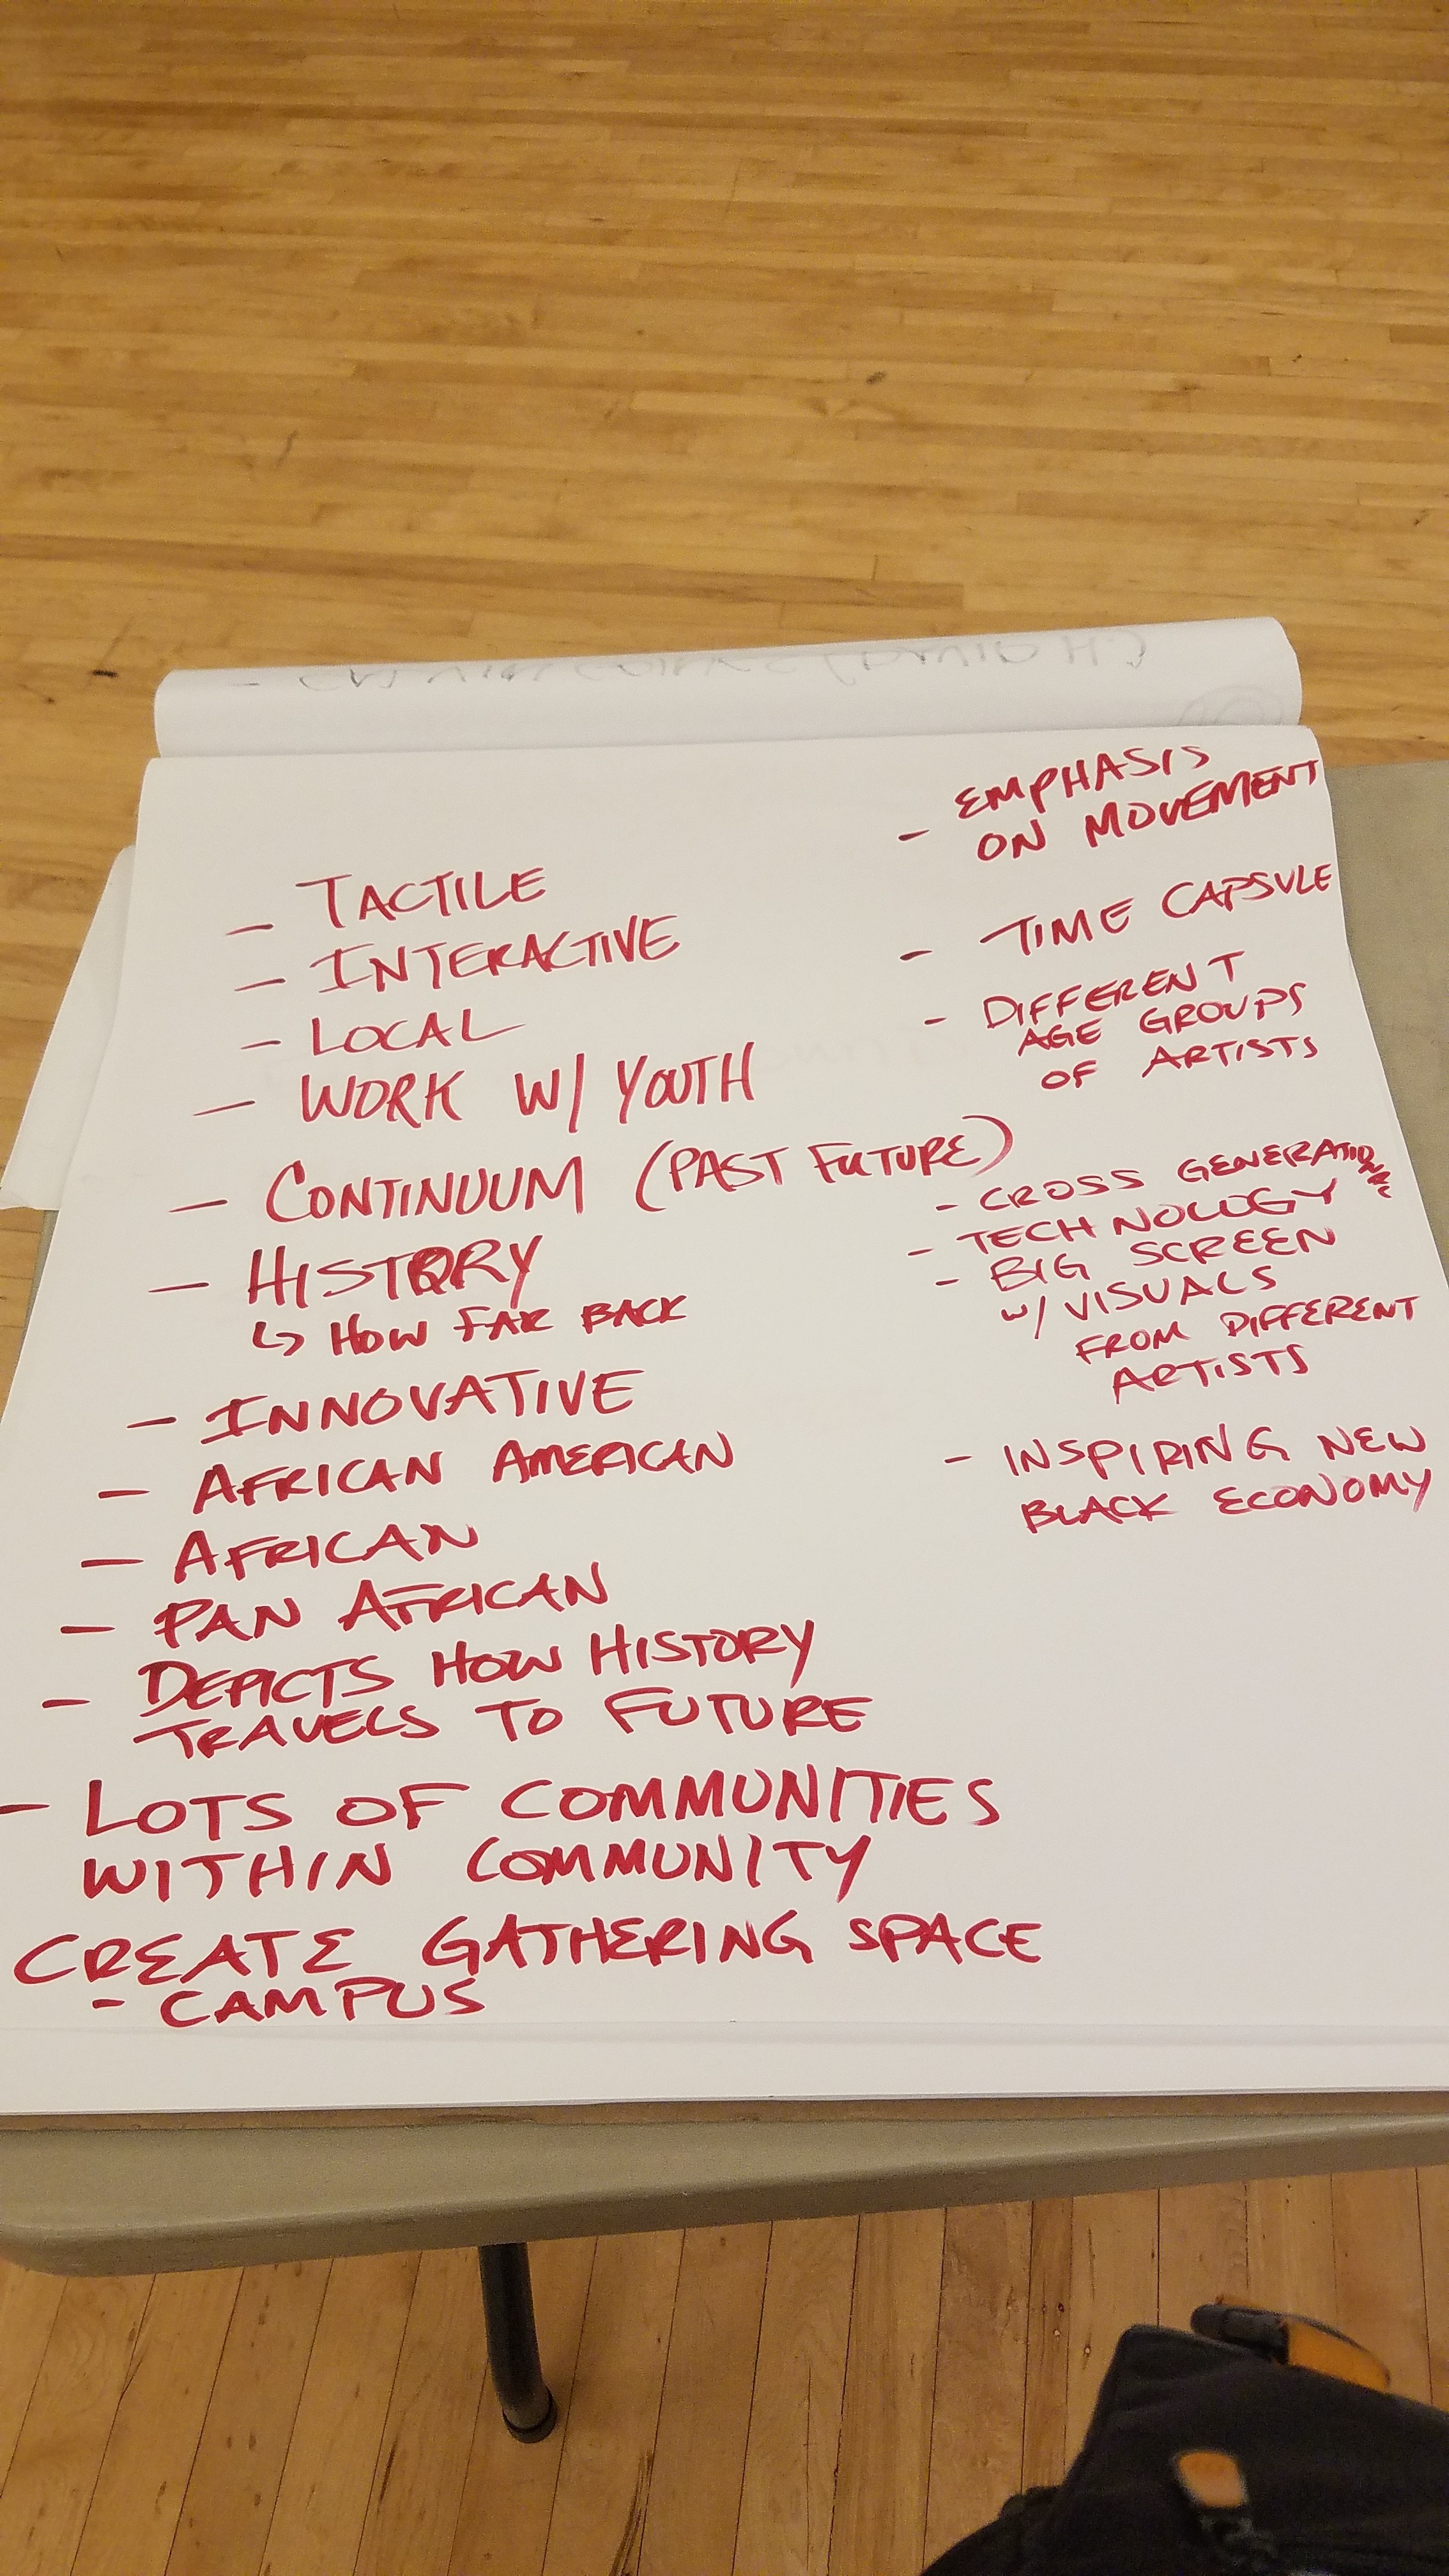 - TACTILE
- INTERACTIVE
- LOCAL
- WORK W/ YOUTH
- CONTINUUM (PAST FUTURE)
- HISTORY
↳ HOW FAR BACK
- INNOVATIVE
- AFRICAN AMERICAN
- AFRICAN
- PAN AFRICAN
- DEPICTS HOW HISTORY
TRAVELS TO FUTURE
- LOTS OF COMMUNITIES
WITHIN COMMUNITY
CREATE GATHERING SPACE
- CAMPUS
- EMPHASIS
ON MOVEMENT
- TIME CAPSULE
- DIFFERENT
AGE GROUPS
OF ARTISTS
- CROSS GENERATIONAL
- TECHNOLOGY
- BIG SCREEN
W/ VISUALS
FROM DIFFERENT
ARTISTS
- INSPIRING NEW
BLACK ECONOMY